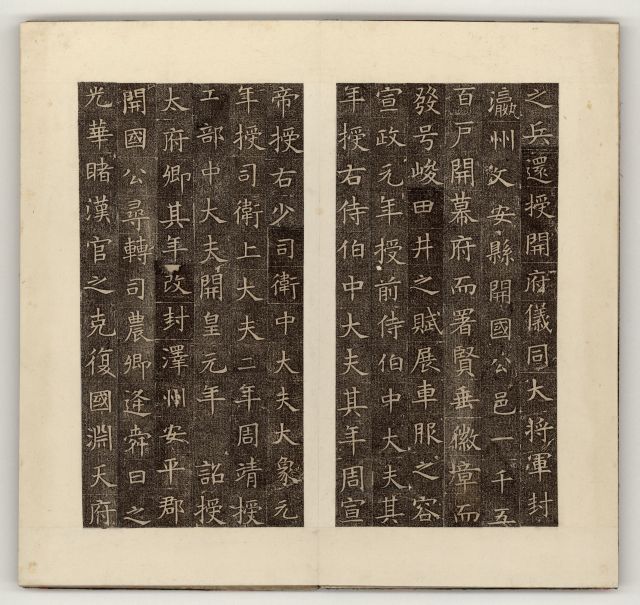 之兵還授開府儀同大將軍封
瀛州文安縣開國公邑一千五
百戸開幕府而署賢垂徽章而
發号峻田井之賦展車服之容
宣政元年授前侍伯中大夫其
年授右侍伯中大夫其年周宣
帝授右少司衛中大夫大象元
年授司衛上大夫二年周靖授
工部中大夫開皇元年 詔授
太府卿其年改封澤州安平郡
開國公尋轉司農卿逢舜日之
光華睹漢官之克復國淵天府